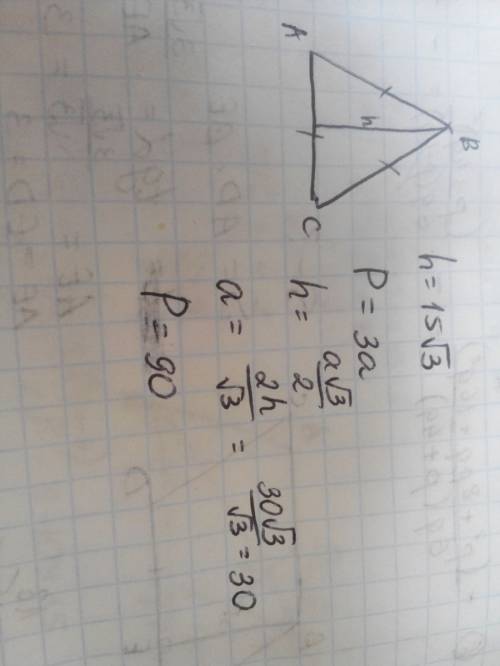 B
A
h
C
h = 15√3
P = 3a
h = a√3/2
a = 2h/√3 = 30√3/√3 = 30
P = 90